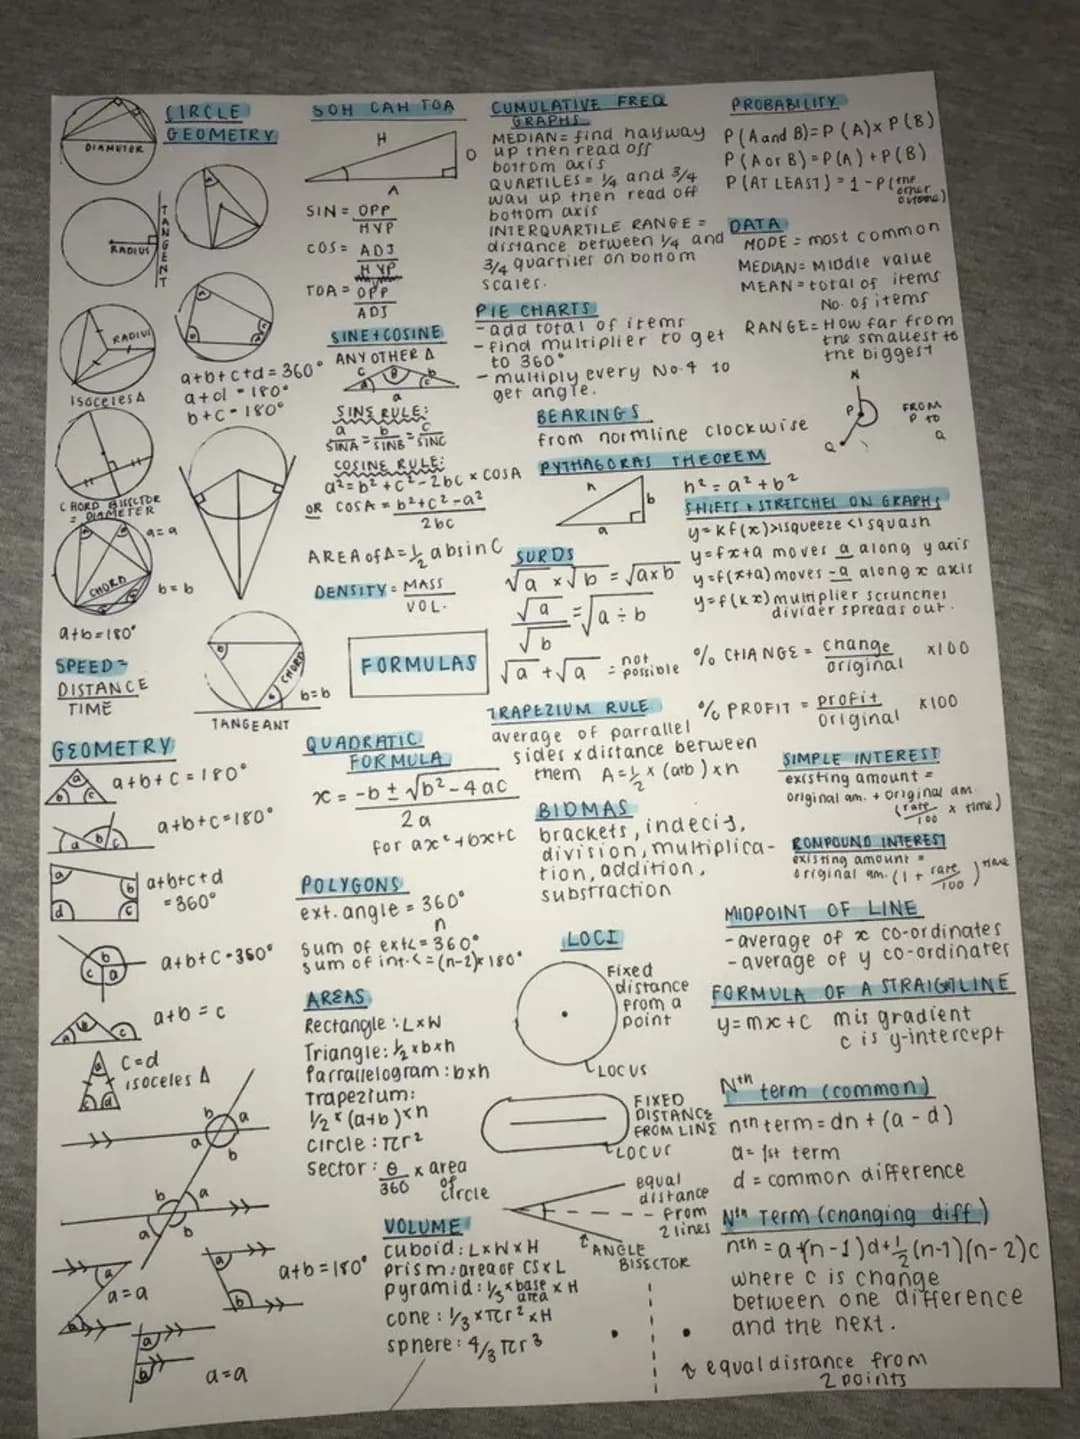 CIRCLE
GEOMETRY
DIAMETER
RADIUS
TANGENT
RADIUS
ISOCELES Δ
a+b+c+d = 360°
a+d = 180°
b+c = 180°
CHORD BISECTOR
= DIAMETER
a = a
CHORD
b = b
a+b = 180°
CHORD
b = b
TANGEANT
SPEED =
DISTANCE
TIME
GEOMETRY
a b c
a+b+c = 180°
a b c
a+b+c = 180°
a b c d
a+b+c+d
= 360°
a b c
a+b+c = 360°
a b c
a+b = c
a c d
c = d
isoceles Δ
b a
a b
b a
a b
a a
a = a
a b
a+b = 180°
a
a = a
SOH CAH TOA
H
O
A
SIN = OPP
HYP
COS = ADJ
HYP
TOA = OPP
ADJ
SINE + COSINE
ANY OTHER Δ
c b
A B C
a
SINE RULE:
a/SINA = b/SINB = c/SINC
COSINE RULE:
a² = b² + c² - 2bc × COSA
OR COSA = b² + c² - a²
2bc
AREA of Δ = ½ absinC
DENSITY = MASS
VOL.
FORMULAS
QUADRATIC
FORMULA
x = -b ± √b² - 4ac
2a
for ax² + bx + c
POLYGONS
ext. angle = 360°
n
sum of ext< = 360°
sum of int.< = (n-2)×180°
AREAS
Rectangle: L×W
Triangle: ½ × b×h
Parrallelogram: b×h
Trapezium:
½ × (a+b)×h
circle: πr²
sector: θ/360 × area
of
circle
VOLUME
cuboid: L×W×H
prism: area of CS×L
pyramid: ⅓ × base area × H
cone: ⅓ × πr² × H
sphere: 4/3 πr³
CUMULATIVE FREQ
GRAPHS
MEDIAN = find halfway
up then read off
bottom axis
QUARTILES = ¼ and ¾
way up then read off
bottom axis
INTERQUARTILE RANGE =
distance between ¼ and
¾ quartiles on bottom
scales.
PIE CHARTS
- add total of items
- find multiplier to get
to 360°
- multiply every No. to
get angle.
BEARINGS
from northline clockwise
N
P
Q
FROM
P TO
Q
PYTHAGORAS THEOREM
h
b
a
h² = a² + b²
SURDS
√a × √b = √a×b
√a/√b = √a ÷ b
√a + √a = not
possible
TRAPEZIUM RULE
average of parrallel
sides × distance between
them A = ½ × (a+b) × h
BIDMAS
brackets, indecis,
division, multiplica-
tion, addition,
substraction
LOCI
Fixed
distance
from a
point
LOCUS
FIXED
DISTANCE
FROM LINE
LOCUS
equal
distance
from
2 lines
ANGLE
BISECTOR
PROBABILITY
P(A and B) = P(A) × P(B)
P(A or B) = P(A) + P(B)
P(AT LEAST) = 1 - P(the
other
outcome)
DATA
MODE = most common
MEDIAN = Middle value
MEAN = total of items
No. of items
RANGE = How far from
the smallest to
the biggest
SHIFTS + STRETCHES ON GRAPHS
y = kf(x) >1 squeeze <1 squash
y = fx+a moves a along y axis
y = f(x+a) moves -a along x axis
y = f(kx) multiplier scrunches
divider spreads out.
% CHANGE = change
original ×100
% PROFIT = profit
original ×100
SIMPLE INTEREST
existing amount =
original am. + original am.
(rate/100 × time)
COMPOUND INTEREST
existing amount =
original am. (1 + rate/100)time
MIDPOINT OF LINE
- average of x co-ordinates
- average of y co-ordinates
FORMULA OF A STRAIGHTLINE
y = mx + c m is gradient
c is y-intercept
Nth term (common)
nth term = dn + (a - d)
a = 1st term
d = common difference
Nth Term (changing diff)
nth = a + (n-1)d + ½(n-1)(n-2)c
where c is change
between one difference
and the next.
equal distance from
2 points